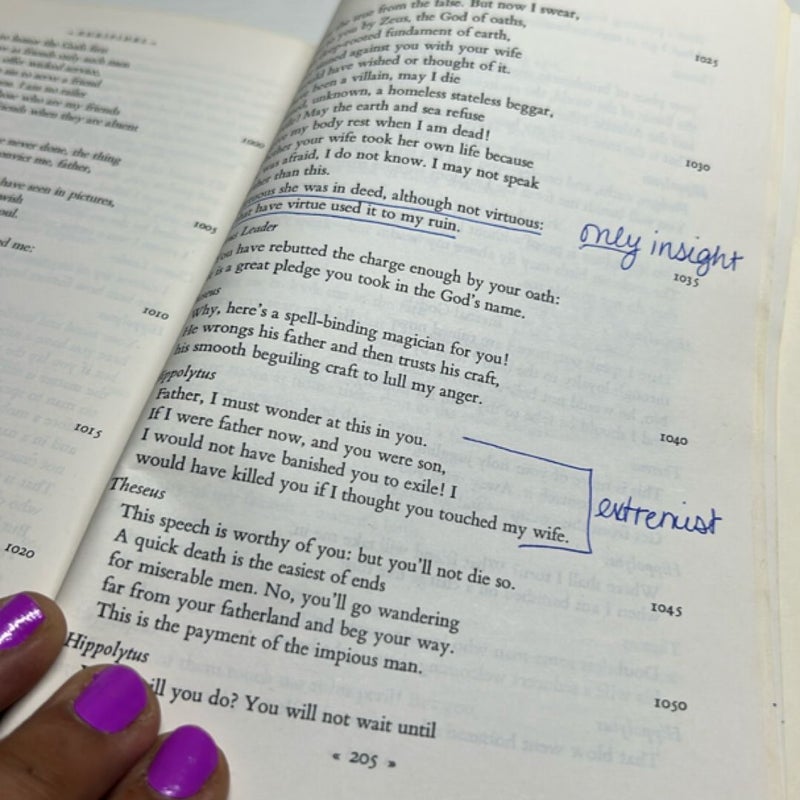 « EURIPIDES »
to honor the Gods first
as friends only such men
offer wicked service,
to serve a friend
I am no railer
who are my friends
friends when they are absent
1000
never done, the thing
convict me, father,
have seen in pictures,
wish
soul.
1005
me:
1010
1015
1020
true from the false. But now I swear,
you by Zeus, the God of oaths,
fundament of earth,
against you with your wife
have wished or thought of it.
1025
been a villain, may I die
unknown, a homeless stateless beggar,
May the earth and sea refuse
my body rest when I am dead!
your wife took her own life because
1030
was afraid, I do not know. I may not speak
than this.
she was in deed, although not virtuous:
have virtue used it to my ruin.
only insight
1035
Leader
have rebutted the charge enough by your oath:
is a great pledge you took in the God's name.
Why, here's a spell-binding magician for you!
He wrongs his father and then trusts his craft,
his smooth beguiling craft to lull my anger.
Hippolytus
Father, I must wonder at this in you.
1040
If I were father now, and you were son,
I would not have banished you to exile! I
would have killed you if I thought you touched my wife.
extremist
Theseus
This speech is worthy of you: but you'll not die so.
A quick death is the easiest of ends
1045
for miserable men. No, you'll go wandering
far from your fatherland and beg your way.
This is the payment of the impious man.
Hippolytus
will you do? You will not wait until
1050
« 205 »